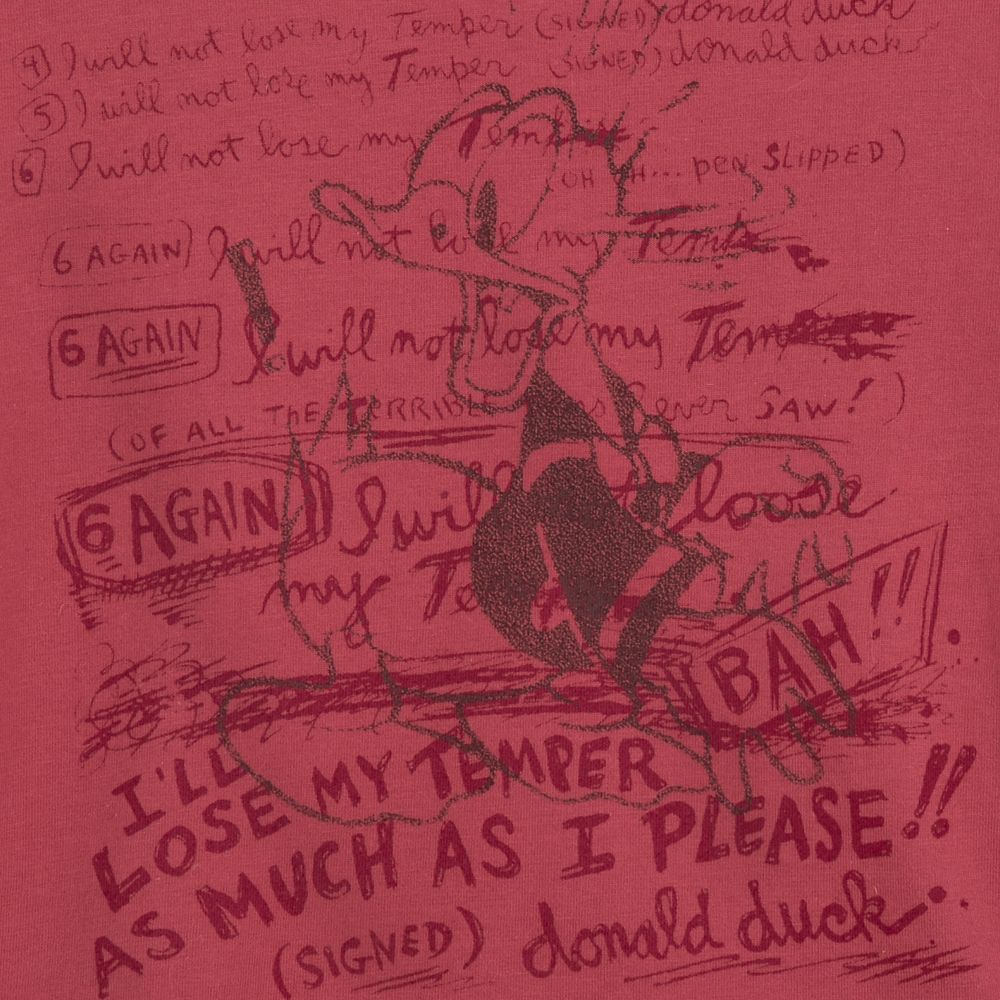 4) I will not lose my Temper (SIGNED) donald duck
5) I will not lose my Temper (SIGNED) donald duck
6 I will not lose my
(OH UH... pen SLIPPED)
6 AGAIN) I will not lose my
6 AGAIN I will not lose my
(OF ALL THE TERRIBLE I ever SAW!)
6 AGAIN I will loose
my
BAH!!
I'LL
LOSE MY TEMPER
AS MUCH AS I PLEASE!!
(SIGNED) donald duck